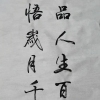 品人生百
悟歲月千